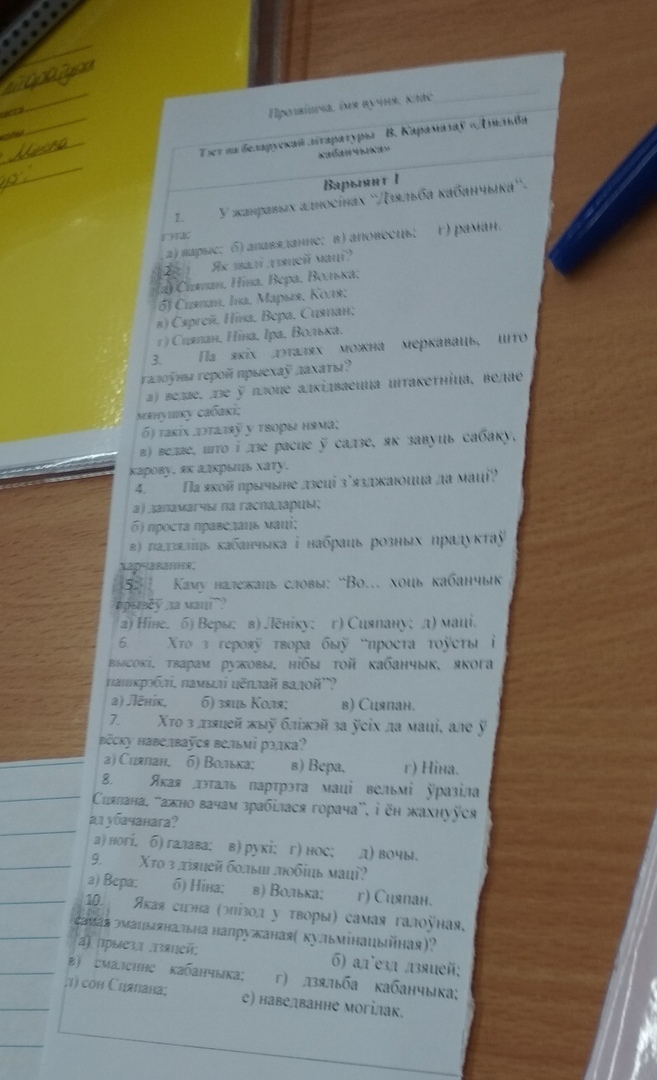 літаратура
Прозвішча, імя вучня, клас
Тэст па беларускай літаратуры В. Карамазаў «Дзяльба
кабанчыка»
Варыянт 1
1. У жанравых адносінах “Дзяльба кабанчыка”-
гэта:
а) нарыс; б) апавяданне; в) аповесць; г) раман.
2. Як звалі дзяцей маці?
а) Сцяпан, Ніна, Вера, Волька;
б) Сцяпан, Іна, Марыя, Коля;
в) Сяргей, Ніна, Вера, Сцяпан;
г) Сцяпан, Ніна, Іра, Волька.
3. Па якіх дэталях можна меркаваць, што
галоўны герой прыехаў дахаты?
а) ведае, дзе ў плоце адкідваецца штакетніца, ведае
мянушку сабакі;
б) такіх дэталяў у творы няма;
в) ведае, што і дзе расце ў садзе, як завуць сабаку,
карову, як адкрыць хату.
4. Па якой прычыне дзеці з’язджаюцца да маці?
а) дапамагчы па гаспадарцы;
б) проста праведаць маці;
в) падзяліць кабанчыка і набраць розных прадуктаў
харчавання;
5. Каму належаць словы: “Во... хоць кабанчык
прывёў да маці”?
а) Ніне, б) Веры; в) Лёніку; г) Сцяпану; д) маці.
6. Хто з герояў твора быў “проста тоўсты і
высокі, тварам ружовы, нібы той кабанчык, якога
пашкрэблі, памылі цёплай вадой”?
а) Лёнік, б) зяць Коля; в) Сцяпан.
7. Хто з дзяцей жыў бліжэй за ўсіх да маці, але ў
вёску наведваўся вельмі рэдка?
а) Сцяпан, б) Волька; в) Вера, г) Ніна.
8. Якая дэталь партрэта маці вельмі ўразіла
Сцяпана, “ажно вачам зрабілася горача”, і ён жахнуўся
ад убачанага?
а) ногі, б) галава; в) рукі; г) нос; д) вочы.
9. Хто з дзяцей больш любіць маці?
а) Вера; б) Ніна; в) Волька; г) Сцяпан.
10. Якая сцэна (эпізод у творы) самая галоўная,
самая эмацыянальна напружаная( кульмінацыйная)?
а) прыезд дзяцей; б) ад’езд дзяцей;
в) смаленне кабанчыка; г) дзяльба кабанчыка;
д) сон Сцяпана; е) наведванне могілак.